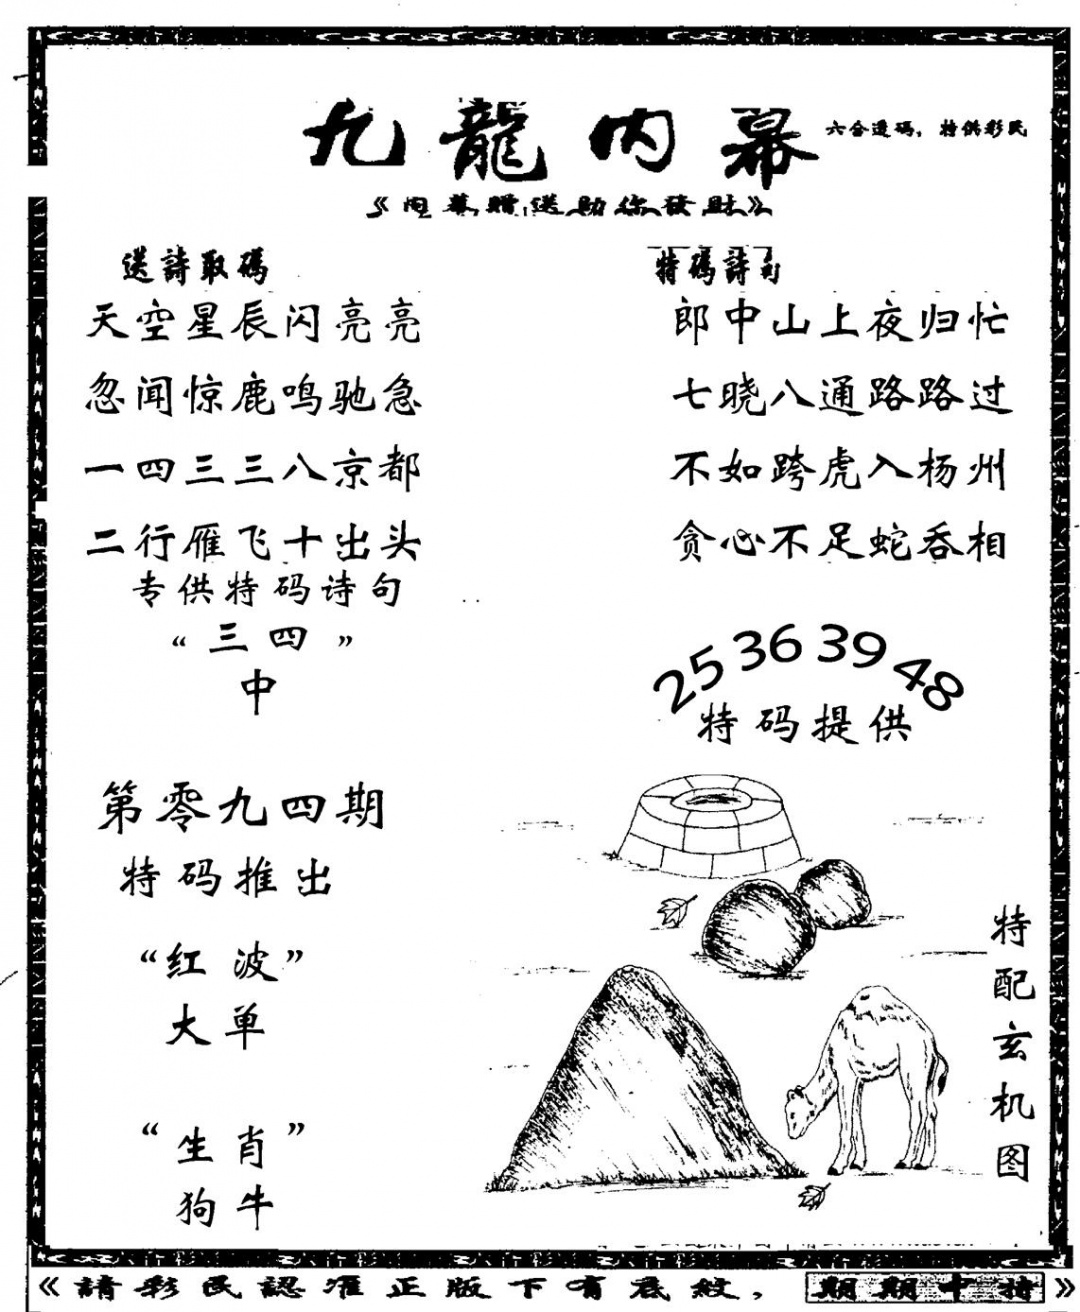 九龍内幕
六合透码，特供彩民
《内幕赠送助你發财》
送詩取碼
天空星辰闪亮亮
忽闻惊鹿鸣驰急
一四三三八京都
二行雁飞十出头
专供特码诗句
“三四”
中
特碼詩句
郎中山上夜归忙
七晓八通路路过
不如跨虎入杨州
贪心不足蛇吞相
25 36 39 48
特码提供
第零九四期
特码推出
“红波”
大单
“生肖”
狗牛
特配玄机图
《請彩民認准正版下有底紋，期期中特》